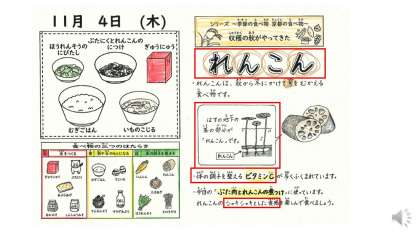 11月 4日 (木)
ほうれんそうの
にびたし
ぶたにくとれんこんの
につけ
ぎゅうにゅう
むぎごはん
いものこじる
食べ物の三つのはたらき
シリーズ ～季節の食べ物 京都の食べ物～
収穫の秋がやってきた
れんこん
れんこんは、秋から冬にかけて旬をむかえる
食べ物です。
はすの地下の
茎の部分が
「れんこん」です。
れんこん
・体の調子を整えるビタミンCが多くふくまれています。
・今日の「ぶた肉とれんこんの煮つけ」に使っています。
れんこんのシャキシャキとした食感を楽しんで食べましょう。